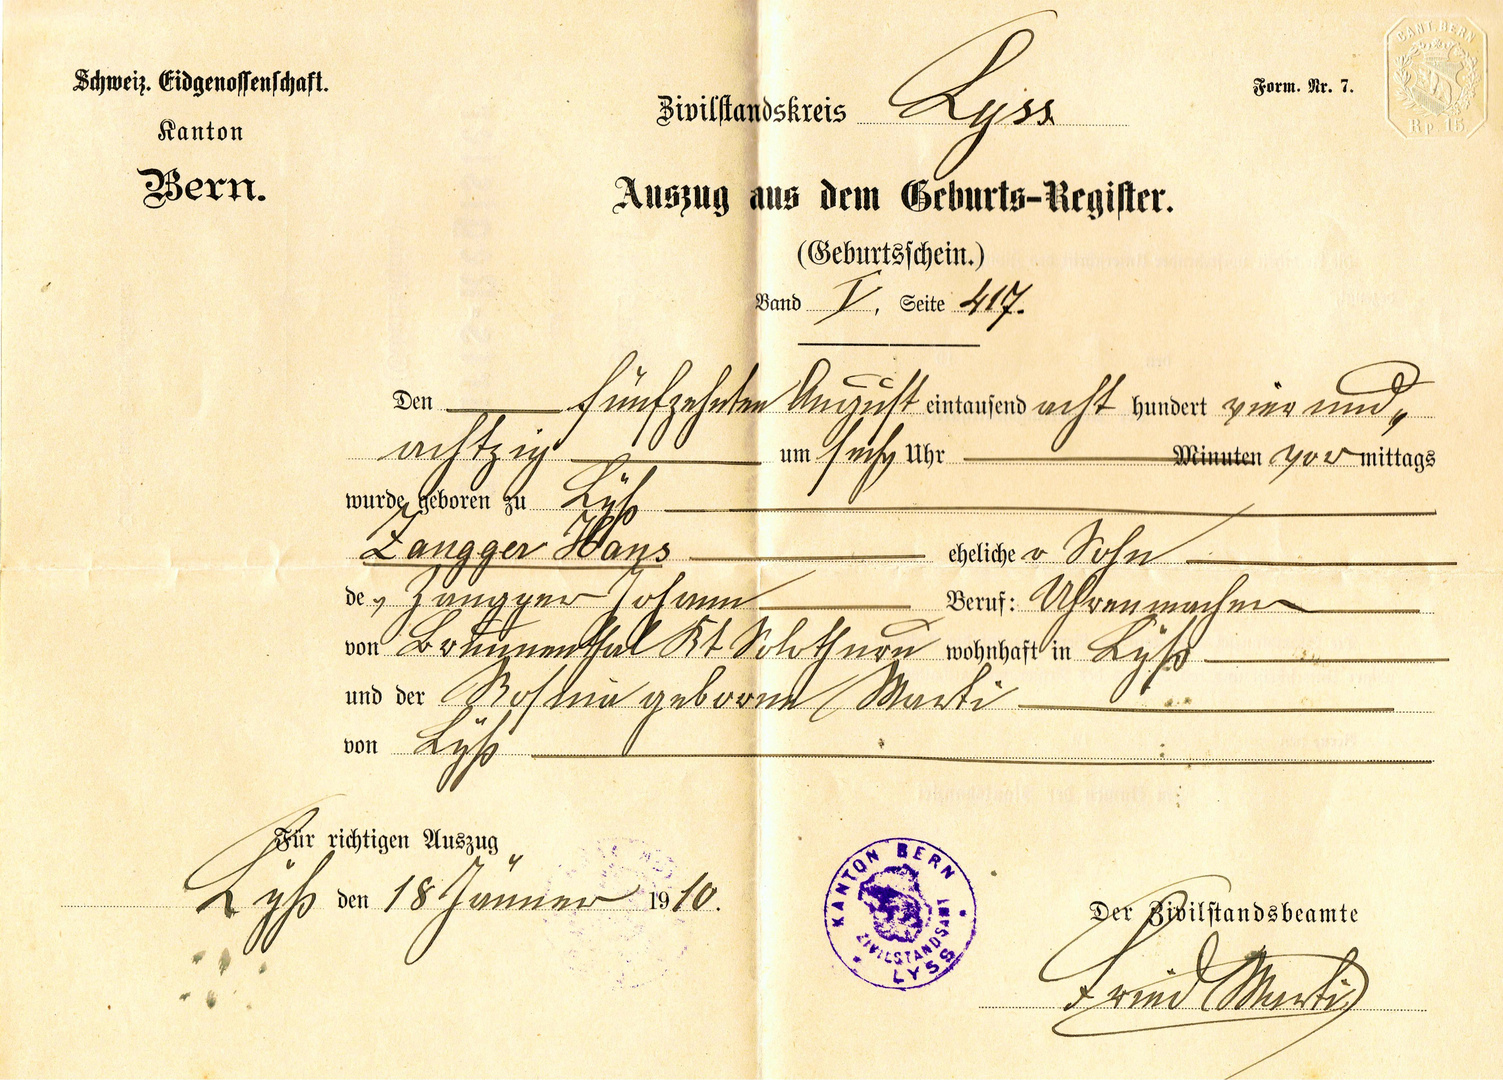 Schweiz. Eidgenossenschaft.
Kanton
Bern.
Zivilstandskreis Lyss
Form. Nr. 7.
CANT. BERN
Rp. 15
Auszug aus dem Geburts-Register.
(Geburtsschein.)
Band V, Seite 417.
Den fünfzehnten August eintausend acht hundert vier und
achtzig um sechs Uhr Minuten vor mittags
wurde geboren zu Lyß
Zangger Hans eheliche r Sohn
des Zangger Johann Beruf: Uhrenmacher
von Brunnenthal Kt Solothurn wohnhaft in Lyß
und der Rosina geborne Marti
von Lyß
Für richtigen Auszug
Lyß den 18 Jänner 1910.
KANTON BERN
ZIVILSTANDSAMT
LYSS
Der Zivilstandsbeamte
Fried Marti